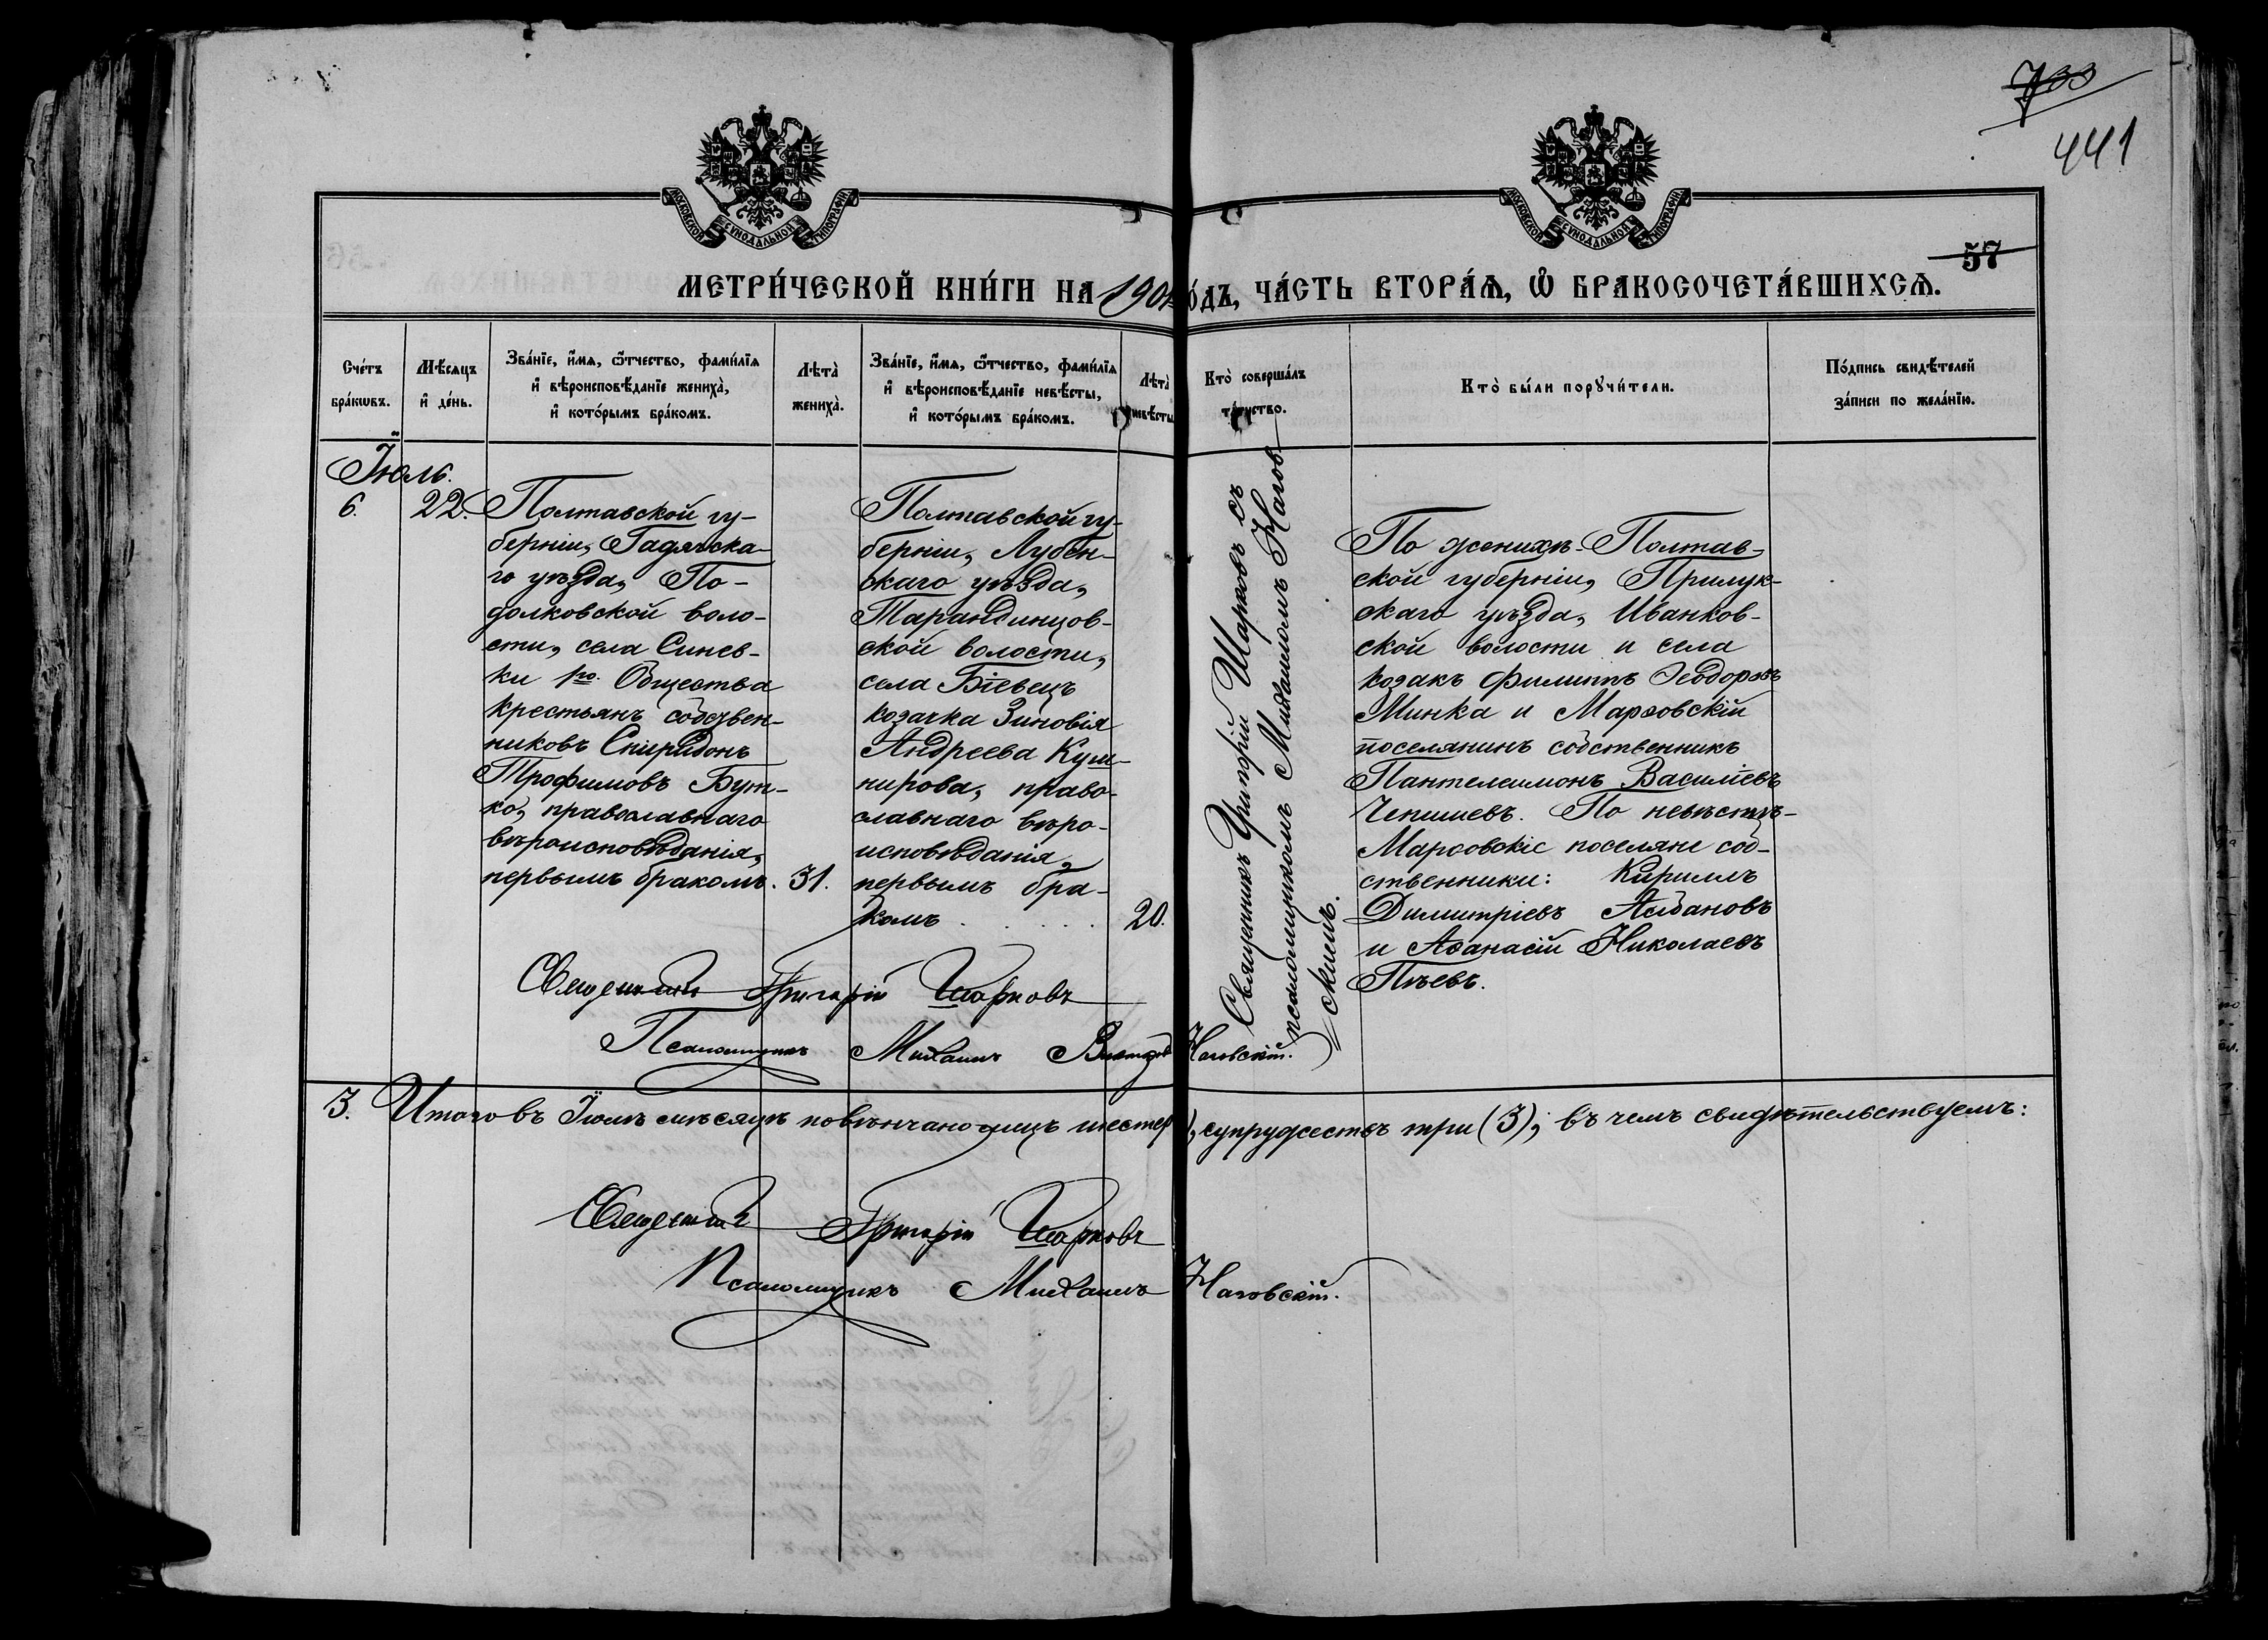 733
441
МОСКОВСКОЙ СѴНОДАЛЬНОЙ ТИПОГРАФІИ
МОСКОВСКОЙ СѴНОДАЛЬНОЙ ТИПОГРАФІИ
57
МЕТРИ́ЧЕСКОЙ КНИ́ГИ НА 190 о́дъ, ЧА́СТЬ ВТОРА́Ѧ, Ѡ҆ БРАКОСОЧЕТА́ВШИХСѦ.
Сче́тъ
бра́кѡвъ.
Мѣ́сѧцъ
и҆ де́нь.
Зва́нїе, и҆́мѧ, ѻ҆́тчество, фами́лїѧ
и҆ вѣроисповѣ́данїе жениха̀,
и҆ кото́рымъ бра́комъ.
Лѣта̀
жениха̀.
Зва́нїе, и҆́мѧ, ѻ҆́тчество, фами́лїѧ
и҆ вѣроисповѣ́данїе невѣ́сты,
и҆ кото́рымъ бра́комъ.
Лѣта̀
невѣ́сты
Кто̀ соверша́лъ
та́инство.
Кто̀ бы́ли порꙋчи́тели.
По́дпись свидѣ́телей
за́писи по жела́нїю.
Іюль.
6.
22.
Полтавской гу-
берніи, Гадячска-
го уѣзда, По-
долковской воло-
сти, села Синев-
ки 1го Общества
крестьянъ собствен-
никовъ Спиридонъ
Трофимовъ Бут-
ко, православнаго
вѣроисповѣданія,
первымъ бракомъ.
31.
Полтавской гу-
берніи, Лубен-
скаго уѣзда,
Тарандинцов-
ской волости,
села Біевецъ
козачка Зиновія
Андреева Куш-
нирова, право-
славнаго вѣро-
исповѣданія,
первымъ бра-
комъ . . . . .
20.
Священникъ Григорій Шарковъ съ
псаломщикомъ Михаиломъ Нагов-
скимъ.
По женихѣ - Полтав-
ской губерніи, Прилук-
скаго уѣзда, Иванков-
ской волости и села
козакъ Филиппъ Ѳеодоровъ
Минка и Марѳовскій
поселянинъ собственникъ
Пантелеимонъ Василіевъ
Чепишевъ. По невѣстѣ -
Марѳовскіе поселяне соб-
ственники: Кириллъ
Димитріевъ Асбановъ
и Аѳанасій Николаевъ
Пѣевъ.
Священникъ Григорій Шарковъ
Псаломщикъ Михаилъ Наговскій.
3. Итого въ Іюлѣ мѣсяцѣ повѣнчано лицъ шестер , супружествъ три (3); въ чемъ свидѣтельствуемъ:
Священникъ Григорій Шарковъ
Псаломщикъ Михаилъ Наговскій.